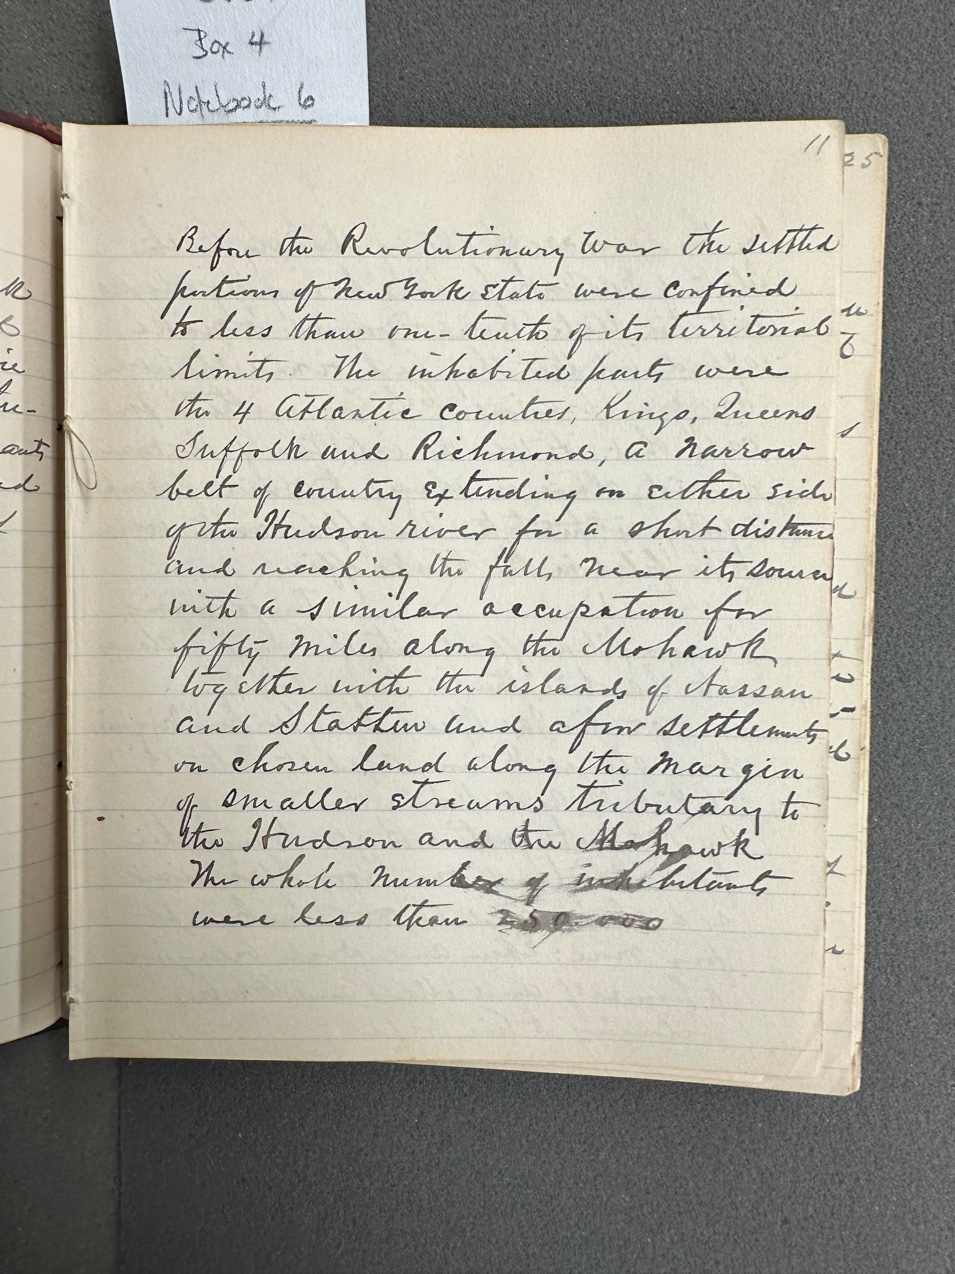 Box 4
Notebook 6
11
25
Before the Revolutionary War the settled
portions of New York State were confined
to less than one-tenth of its territorial
limits. The inhabited parts were
the 4 Atlantic counties, Kings, Queens
Suffolk and Richmond, a narrow
belt of country extending on either side
of the Hudson river for a short distance
and reaching the falls near its source
with a similar occupation for
fifty miles along the Mohawk
together with the islands of Nassau
and Statten and a few settlements
on chosen land along the margin
of smaller streams tributary to
the Hudson and the Mohawk
The whole number of inhabitants
were less than 250.000